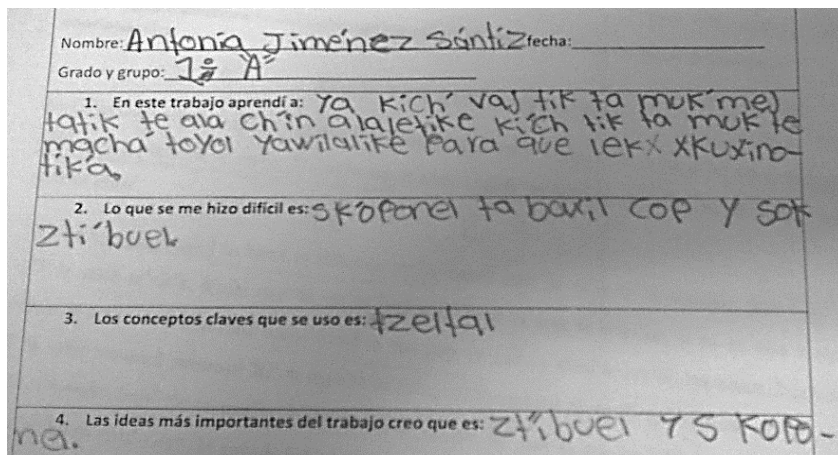 Nombre: Antonia Jiménez Sántiz fecha:
Grado y grupo: 1º "A"
1. En este trabajo aprendí a: Ya kich' vaj tik ta muk' mej
tatik te ala ch'in alaletike kich tik ta muk te
macha toyol yawilalike Para que lekx xkuxino-
tika.
2. Lo que se me hizo difícil es: skoponel ta baxil cop y sok
ztí'buel
3. Los conceptos claves que se uso es: tzeltal
4. Las ideas más importantes del trabajo creo que es: ztí'buel y s kopo-
nel.